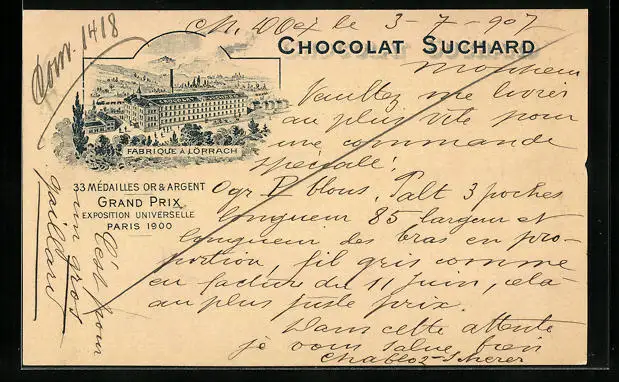 le 3-7-907
Com. 1418
CHOCOLAT SUCHARD
Monsieur
Veuillez me livrer
au plus vite pour
une commande
spéciale:
FABRIQUE A LÖRRACH
33 MÉDAILLES OR & ARGENT
GRAND PRIX
EXPOSITION UNIVERSELLE
PARIS 1900
blous. Palt 3 poches
longueur 85 largeur et
longueur des bras en pro-
portion, fil gris comme
en facture du 11 juin, cela
au plus juste prix.
Dans cette attente
je vous salue bien
Chabloz-Scherer
C'est pour
un gros
gaillard